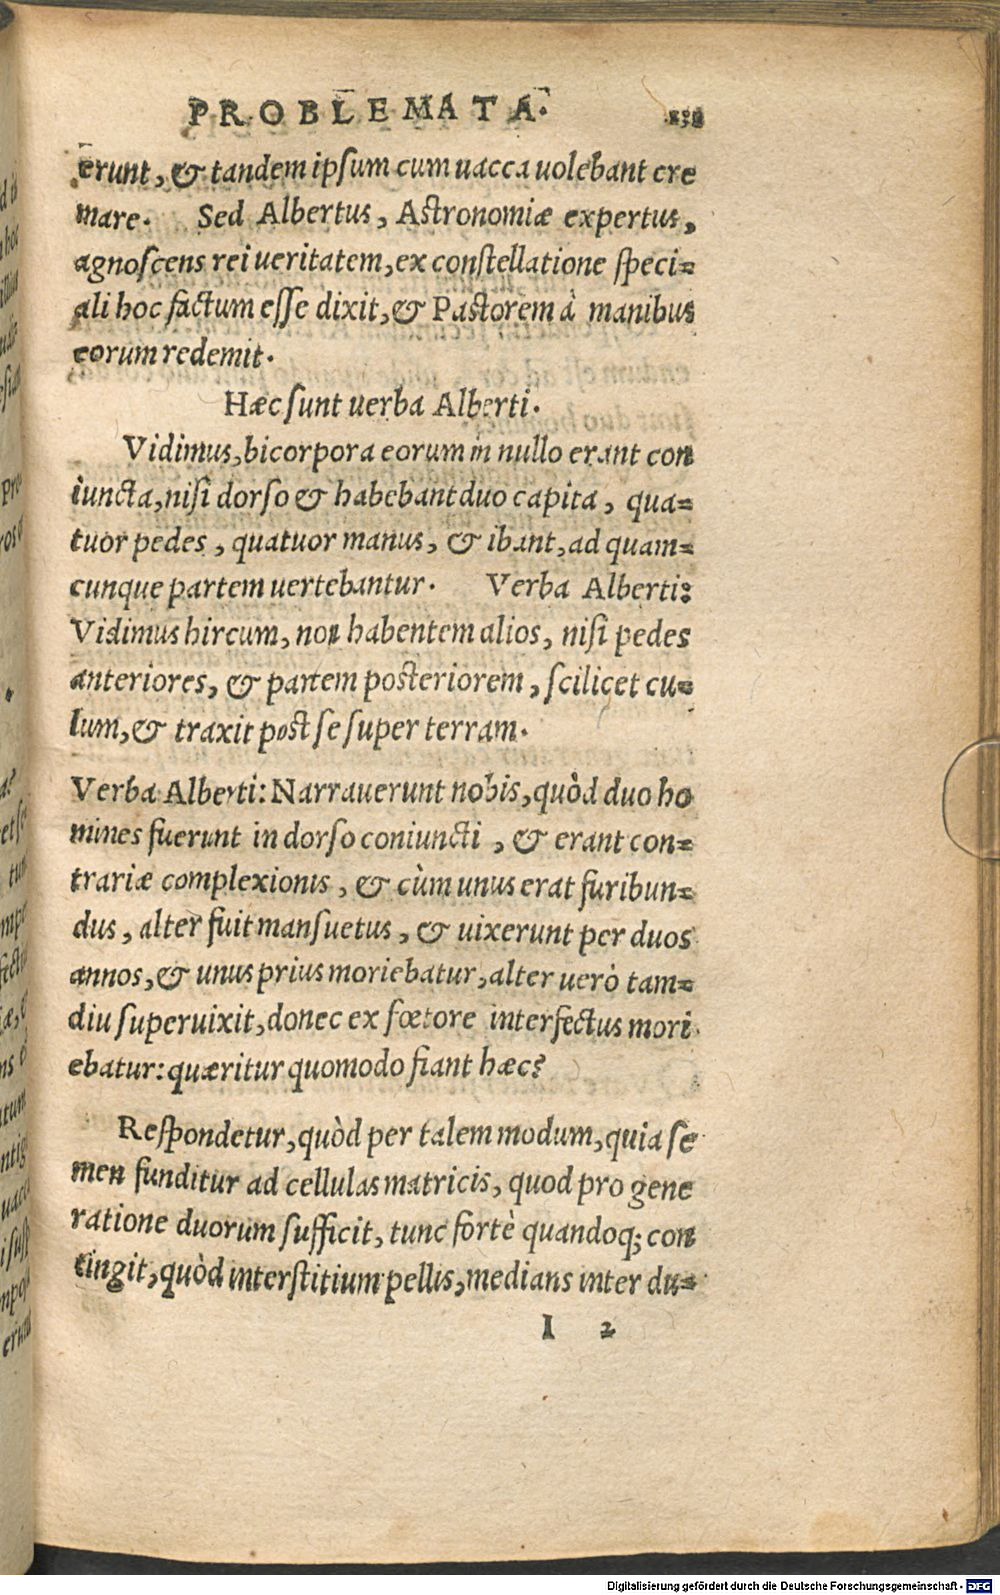 PROBLEMATA.
erunt, & tandem ipsum cum uacca uolebant cre
mare. Sed Albertus, Astronomiæ expertus,
agnoscens rei ueritatem, ex constellatione speci=
ali hoc factum esse dixit, & Pastorem à manibus
eorum redemit.
Hæc sunt uerba Alberti.
Vidimus, bicorpora eorum in nullo erant con
iuncta, nisi dorso & habebant duo capita, qua=
tuor pedes, quatuor manus, & ibant, ad quam=
cunque partem uertebantur. Verba Alberti:
Vidimus hircum, non habentem alios, nisi pedes
anteriores, & partem posteriorem, scilicet cu=
lum, & traxit post se super terram.
Verba Alberti: Narrauerunt nobis, quòd duo ho
mines fuerunt in dorso coniuncti, & erant con=
trariæ complexionis, & cùm unus erat furibun=
dus, alter fuit mansuetus, & uixerunt per duos
annos, & unus prius moriebatur, alter uerò tam=
diu superuixit, donec ex fœtore interfectus mori
ebatur: quæritur quomodo fiant hæc?
Respondetur, quòd per talem modum, quia se
men funditur ad cellulas matricis, quod pro gene
ratione duorum sufficit, tunc fortè quandoq; con
tingit, quòd interstitium pellis, medians inter du=
I 2
Digitalisierung gefördert durch die Deutsche Forschungsgemeinschaft - DFG